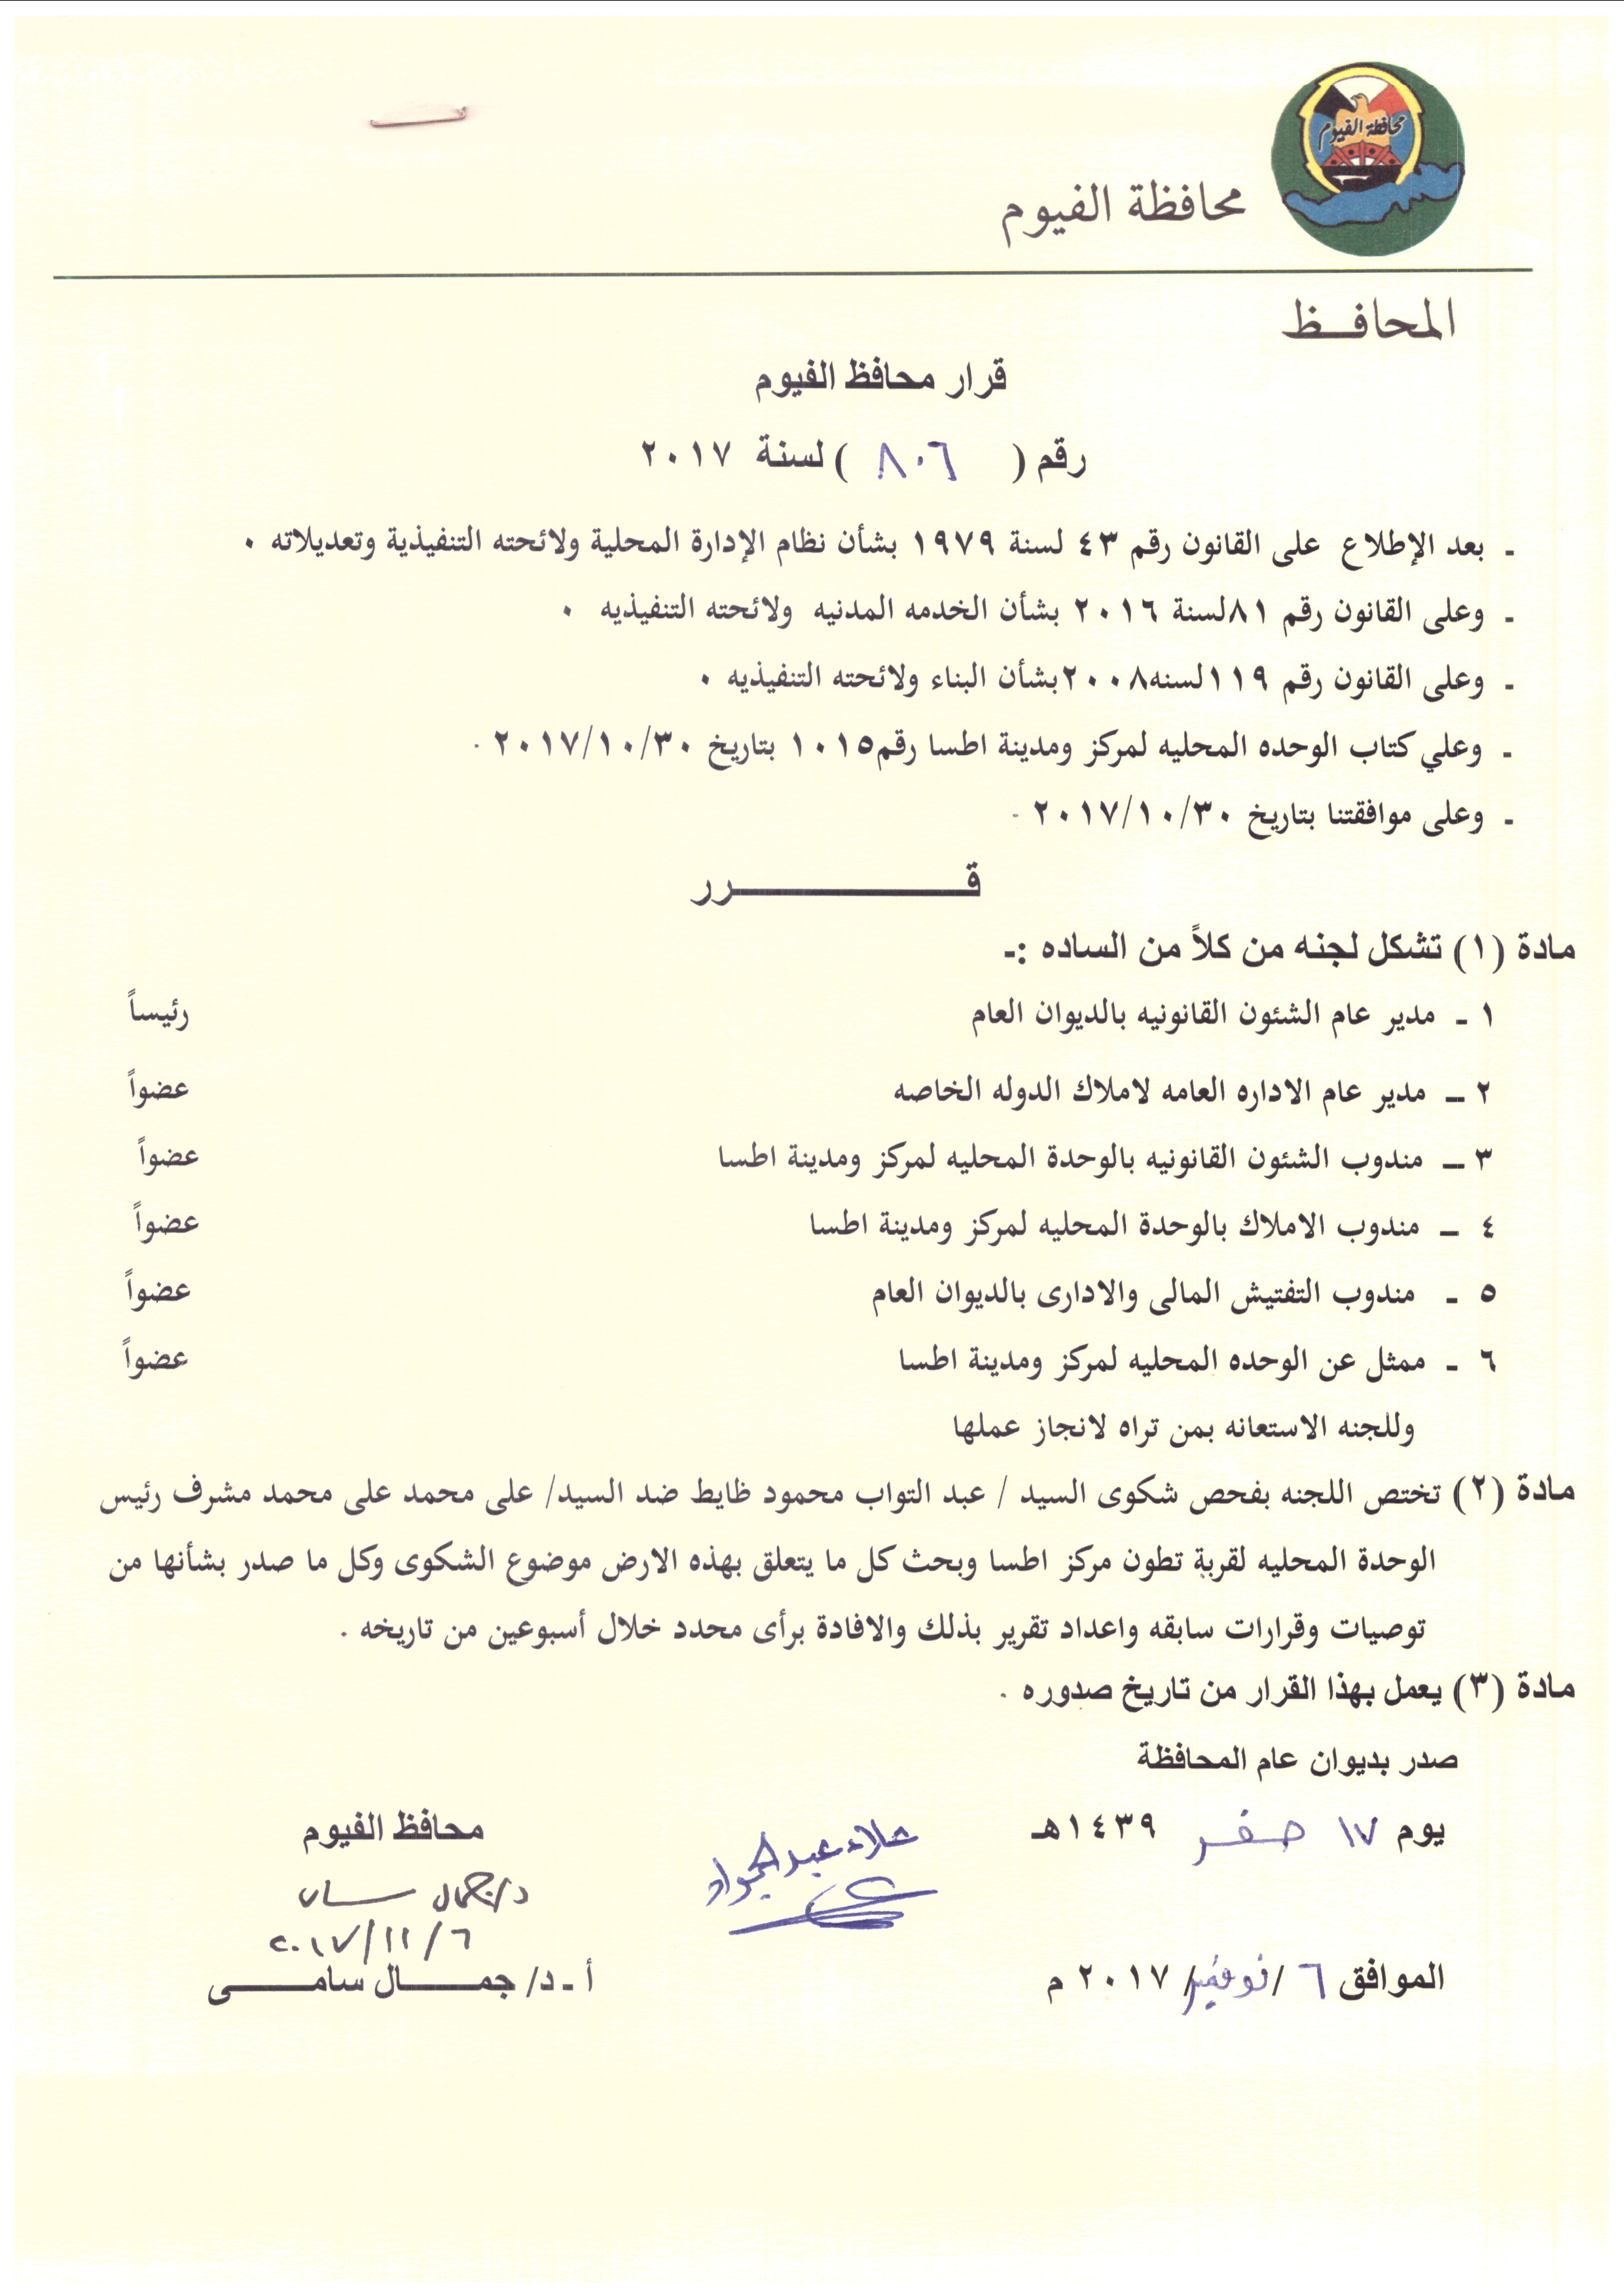 محافظة الفيوم
محافظة الفيوم
المحافـــظ
قرار محافظ الفيوم
رقم ( ٨٠٦ ) لسنة ٢٠١٧
ـ بعد الإطلاع على القانون رقم ٤٣ لسنة ١٩٧٩ بشأن نظام الإدارة المحلية ولائحته التنفيذية وتعديلاته ٠
ـ وعلى القانون رقم ٨١لسنة ٢٠١٦ بشأن الخدمه المدنيه ولائحته التنفيذيه ٠
ـ وعلى القانون رقم ١١٩لسنه٢٠٠٨بشأن البناء ولائحته التنفيذيه ٠
ـ وعلي كتاب الوحده المحليه لمركز ومدينة اطسا رقم١٠١٥ بتاريخ ٢٠١٧/١٠/٣٠ ٠
ـ وعلى موافقتنا بتاريخ ٢٠١٧/١٠/٣٠ ٠
قــــــــــــرر
مادة (١) تشكل لجنه من كلاً من الساده :ـ
١ ـ مدير عام الشئون القانونيه بالديوان العام رئيساً
٢ ــ مدير عام الاداره العامه لاملاك الدوله الخاصه عضواً
٣ ــ مندوب الشئون القانونيه بالوحدة المحليه لمركز ومدينة اطسا عضواً
٤ ــ مندوب الاملاك بالوحدة المحليه لمركز ومدينة اطسا عضواً
٥ ـ مندوب التفتيش المالى والادارى بالديوان العام عضواً
٦ ـ ممثل عن الوحده المحليه لمركز ومدينة اطسا عضواً
وللجنه الاستعانه بمن تراه لانجاز عملها
مادة (٢) تختص اللجنه بفحص شكوى السيد / عبد التواب محمود ظايط ضد السيد/ على محمد على محمد مشرف رئيس
الوحدة المحليه لقرية تطون مركز اطسا وبحث كل ما يتعلق بهذه الارض موضوع الشكوى وكل ما صدر بشأنها من
توصيات وقرارات سابقه واعداد تقرير بذلك والافادة برأى محدد خلال أسبوعين من تاريخه .
مادة (٣) يعمل بهذا القرار من تاريخ صدوره .
صدر بديوان عام المحافظة
يوم ١٧ صفر ١٤٣٩هـ
علاء عبد الجواد
محافظ الفيوم
د/جمال سامى
٢٠١٧/١١/٦
الموافق ٦ /نوفمبر/ ٢٠١٧ م
أ ـ د/ جمــــال سامـــــى